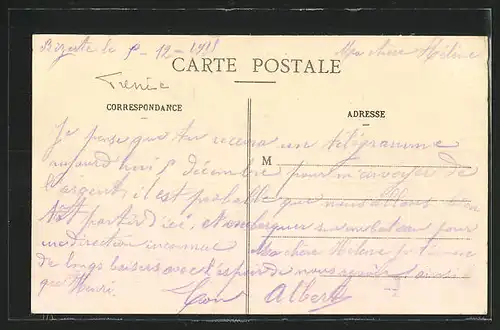 Bizerte le 8-12-1918
Ma chère Hélène
CARTE POSTALE
CORRESPONDANCE
ADRESSE
M
Je pense que tu recevra un télégramme
aujourd'hui 8 décembre pour m'envoyer de
l'argent, il est probable que nous allons
partir d'ici, et embarquer sur un bateau pour
une direction inconnue Ma chère Hélène je t'envoie
de longs baisers avec l'espoir de nous
que Henri. Ton Albert